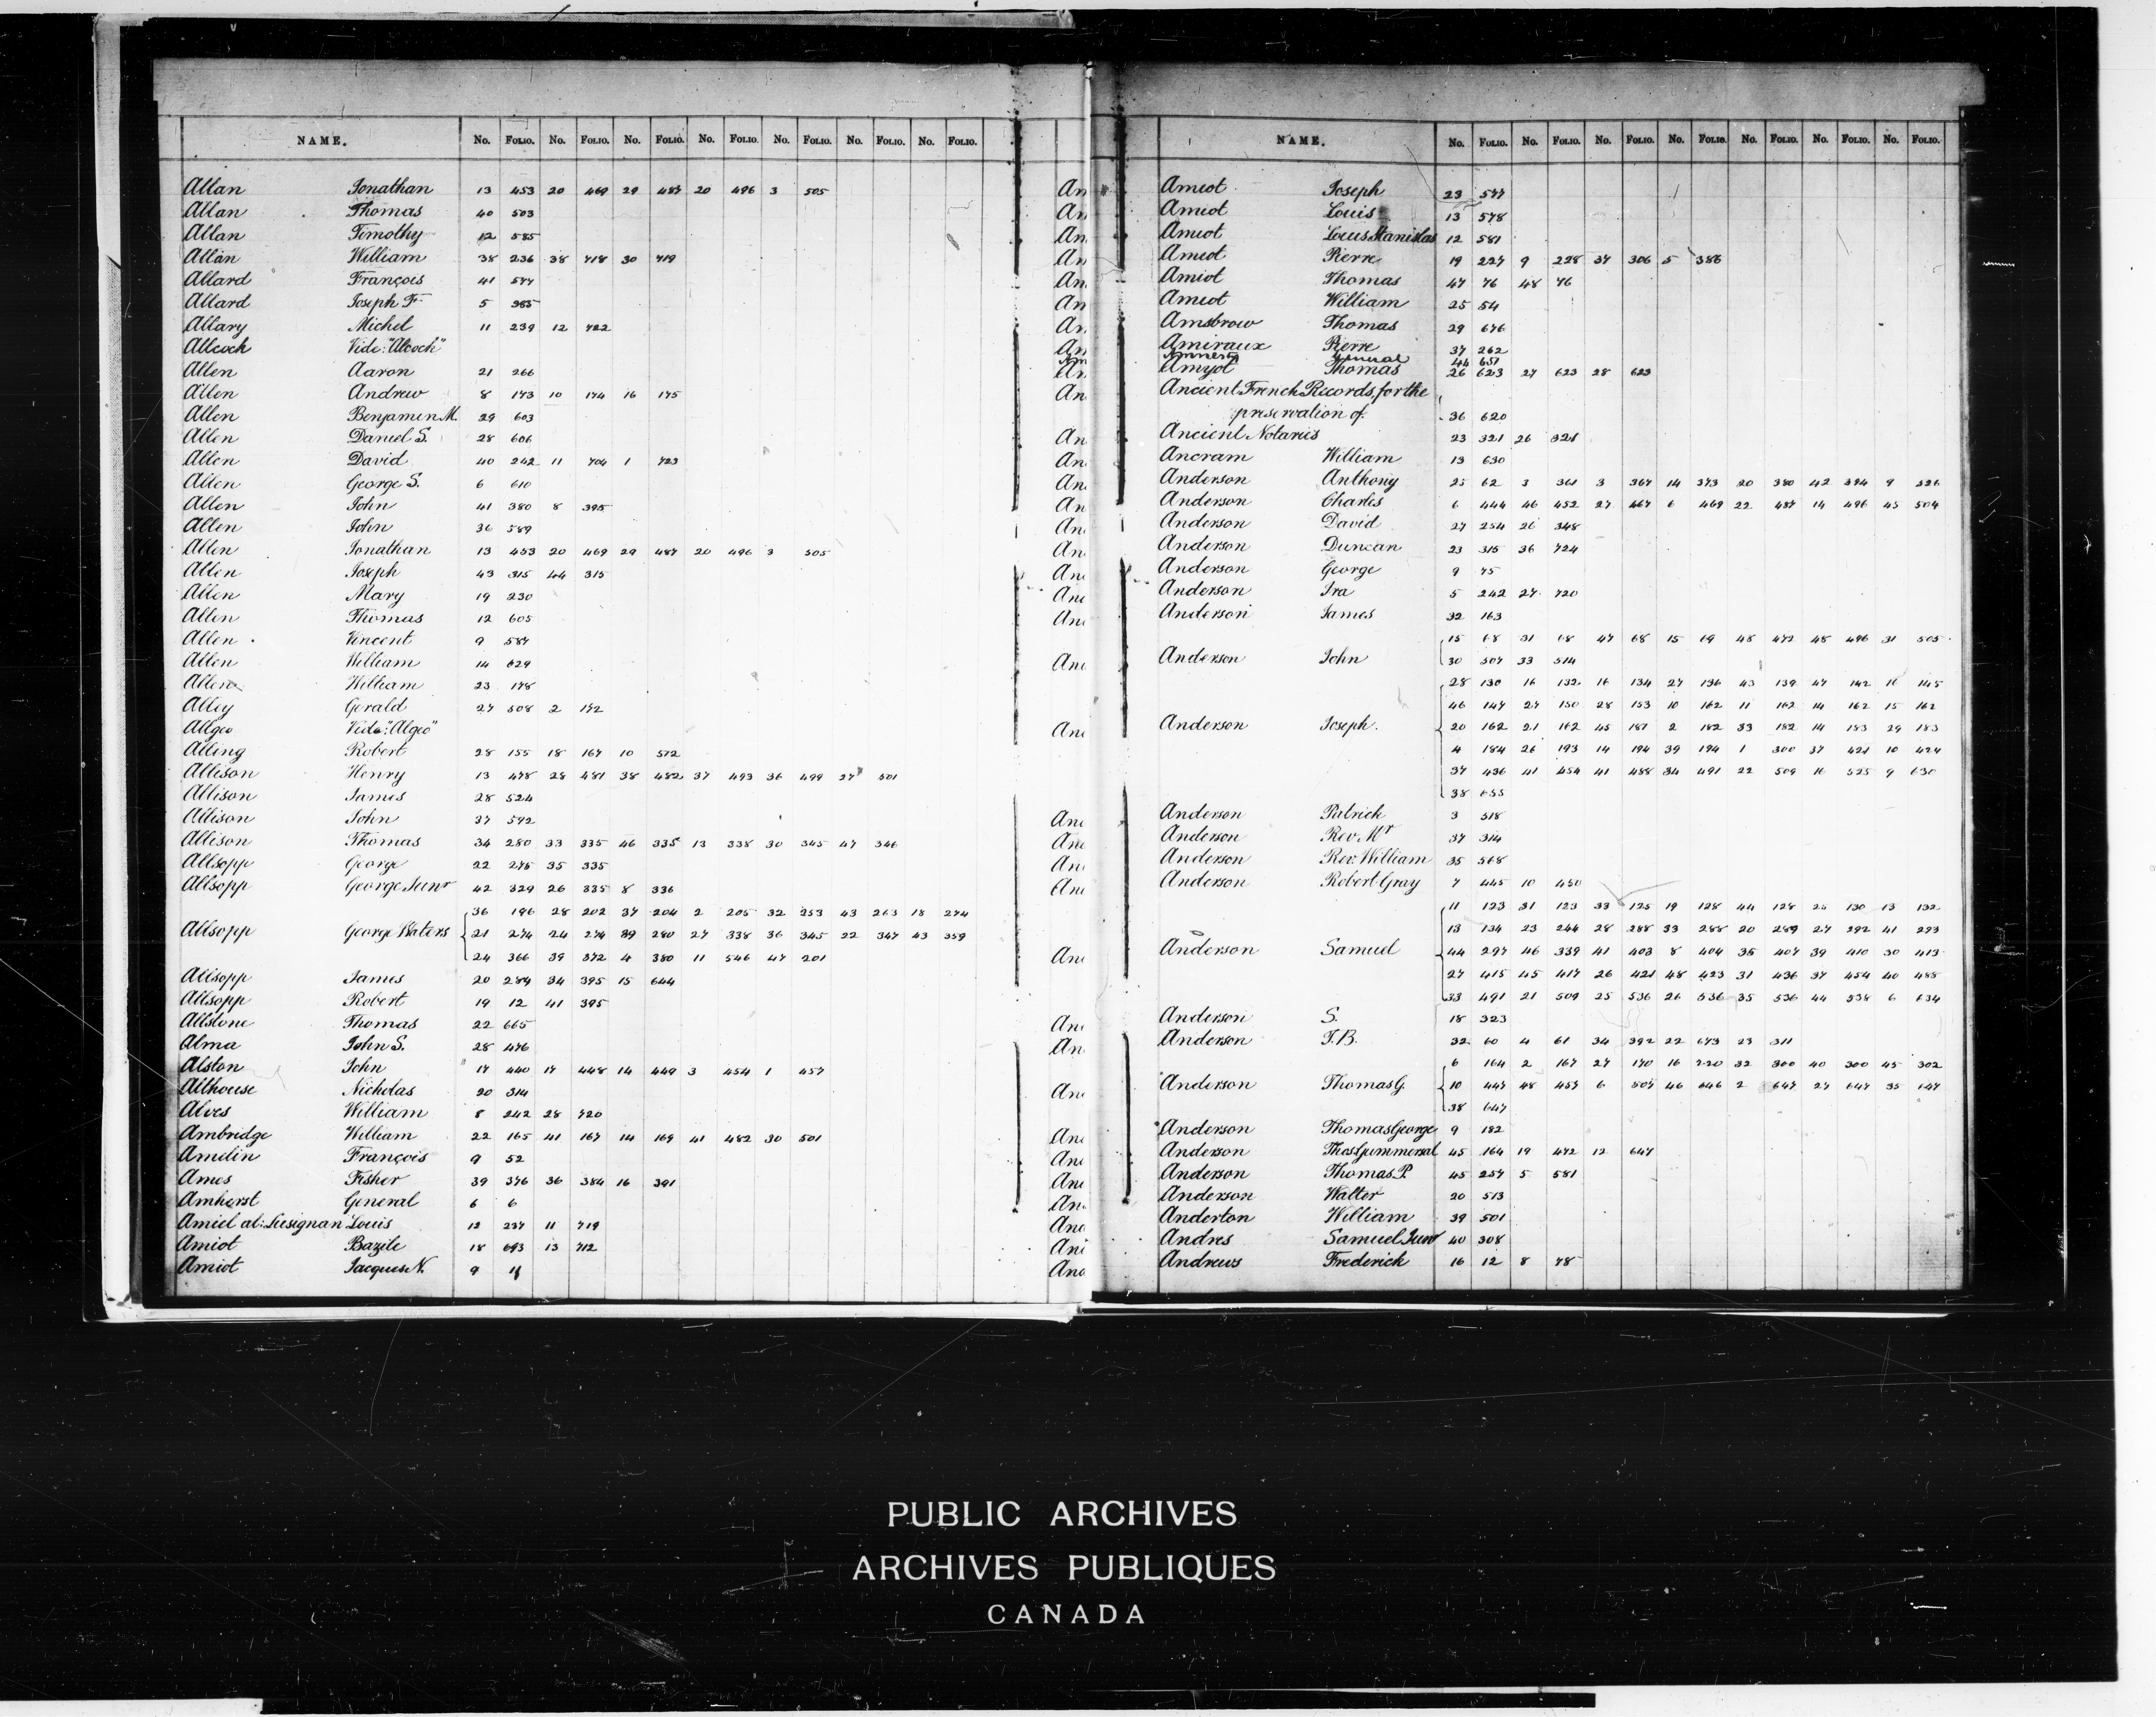 NAME. No. FOLIO. No. FOLIO. No. FOLIO. No. FOLIO. No. FOLIO. No. FOLIO. No. FOLIO.
Allan Jonathan 13 453 20 469 29 487 20 496 3 505
Allan Thomas 40 503
Allan Timothy 12 585
Allan William 38 236 38 718 30 719
Allard François 41 577
Allard Joseph F. 5 385
Allary Michel 11 239 12 722
Allcock Vide: "Alcock"
Allen Aaron 21 266
Allen Andrew 8 173 10 174 16 175
Allen Benjamin M. 29 603
Allen Daniel S. 28 606
Allen David 40 242 11 704 1 723
Allen George S. 6 610
Allen John 41 380 8 395
Allen John 36 589
Allen Jonathan 13 453 20 469 29 487 20 496 3 505
Allen Joseph 43 315 44 315
Allen Mary 19 230
Allen Thomas 12 605
Allen Vincent 9 587
Allen William 14 629
Allen William 23 178
Alley Gerald 27 508 2 172
Allgeo Vide: "Algeo"
Alling Robert 28 155 18 167 10 572
Allison Henry 13 478 28 481 38 482 37 493 36 499 27 501
Allison James 28 524
Allison John 37 592
Allison Thomas 34 280 33 335 46 335 13 338 30 345 47 346
Allsopp George 22 275 35 335
Allsopp George Junr 42 329 26 335 8 336
36 196 28 202 37 204 2 205 32 253 43 263 18 274
Allsopp George Waters 21 274 24 274 39 280 27 338 36 345 22 347 43 359
24 366 39 372 4 380 11 546 47 201
Allsopp James 20 289 34 395 15 644
Allsopp Robert 19 12 41 395
Allstone Thomas 22 665
Alma John S. 28 476
Alston John 17 440 17 448 14 449 3 454 1 457
Althouse Nicholas 20 314
Alves William 8 242 28 720
Ambridge William 22 165 41 167 14 169 41 482 30 501
Amelin François 9 52
Ames Fisher 39 376 36 384 16 391
Amherst General 6 6
Amiel al: Lusignan Louis 12 237 11 719
Amiot Bazile 18 693 13 712
Amiot Jacques N. 9
NAME. No. FOLIO. No. FOLIO. No. FOLIO. No. FOLIO. No. FOLIO. No. FOLIO. No. FOLIO.
Amiot Joseph 23 577
Amiot Louis 13 578
Amiot Louis Stanislas 12 581
Amiot Pierre 19 227 9 228 37 306 5 386
Amiot Thomas 47 76 48 76
Amiot William 25 54
Amsbrow Thomas 29 676
Amiraux Pierre 37 262
Amnesty General 44 651
Amyot Thomas 26 623 27 623 28 623
Ancient French Records, for the
preservation of. 36 620
Ancient Notaries 23 321 26 321
Ancram William 13 630
Anderson Anthony 25 62 3 361 3 367 14 373 20 380 42 394 9 526
Anderson Charles 6 444 46 452 27 467 6 469 22 487 14 496 45 504
Anderson David 27 254 26 348
Anderson Duncan 23 315 36 724
Anderson George 9 75
Anderson Ira 5 242 27 720
Anderson James 32 163
15 68 31 68 47 68 15 69 48 472 48 496 31 505
Anderson John 30 507 33 514
28 130 16 132 16 134 27 136 43 139 47 142 16 145
46 147 27 150 28 153 10 162 11 162 14 162 15 162
Anderson Joseph. 20 162 21 162 45 181 2 182 33 182 14 183 29 183
4 184 26 193 14 194 39 194 1 300 37 421 10 424
37 436 41 454 41 488 34 491 22 509 16 525 9 630
38 655
Anderson Patrick 3 518
Anderson Rev. Mr 37 314
Anderson Rev. William 35 568
Anderson Robert Gray 7 445 10 450
11 123 31 123 33 125 19 128 44 128 25 130 13 132
13 134 23 244 28 288 33 288 20 289 27 292 41 293
Anderson Samuel 44 297 46 339 41 403 8 404 35 407 39 410 30 413
27 415 45 417 26 421 48 423 31 436 37 454 40 488
33 491 21 509 25 536 26 536 35 536 44 538 6 634
Anderson S. 18 323
Anderson T.B. 32 60 4 61 34 392 22 673 23 311
6 164 2 167 27 170 16 220 32 300 40 300 45 302
Anderson Thomas G. 10 447 48 457 6 507 46 646 2 647 27 647 35 647
38 647
Anderson Thomas George 9 182
Anderson Thos Gummersal 45 164 19 472 12 647
Anderson Thomas P. 45 257 5 581
Anderson Walter 20 513
Anderton William 39 501
Andres Samuel Junr 40 308
Andrews Frederick 16 12 8 78
PUBLIC ARCHIVES
ARCHIVES PUBLIQUES
CANADA